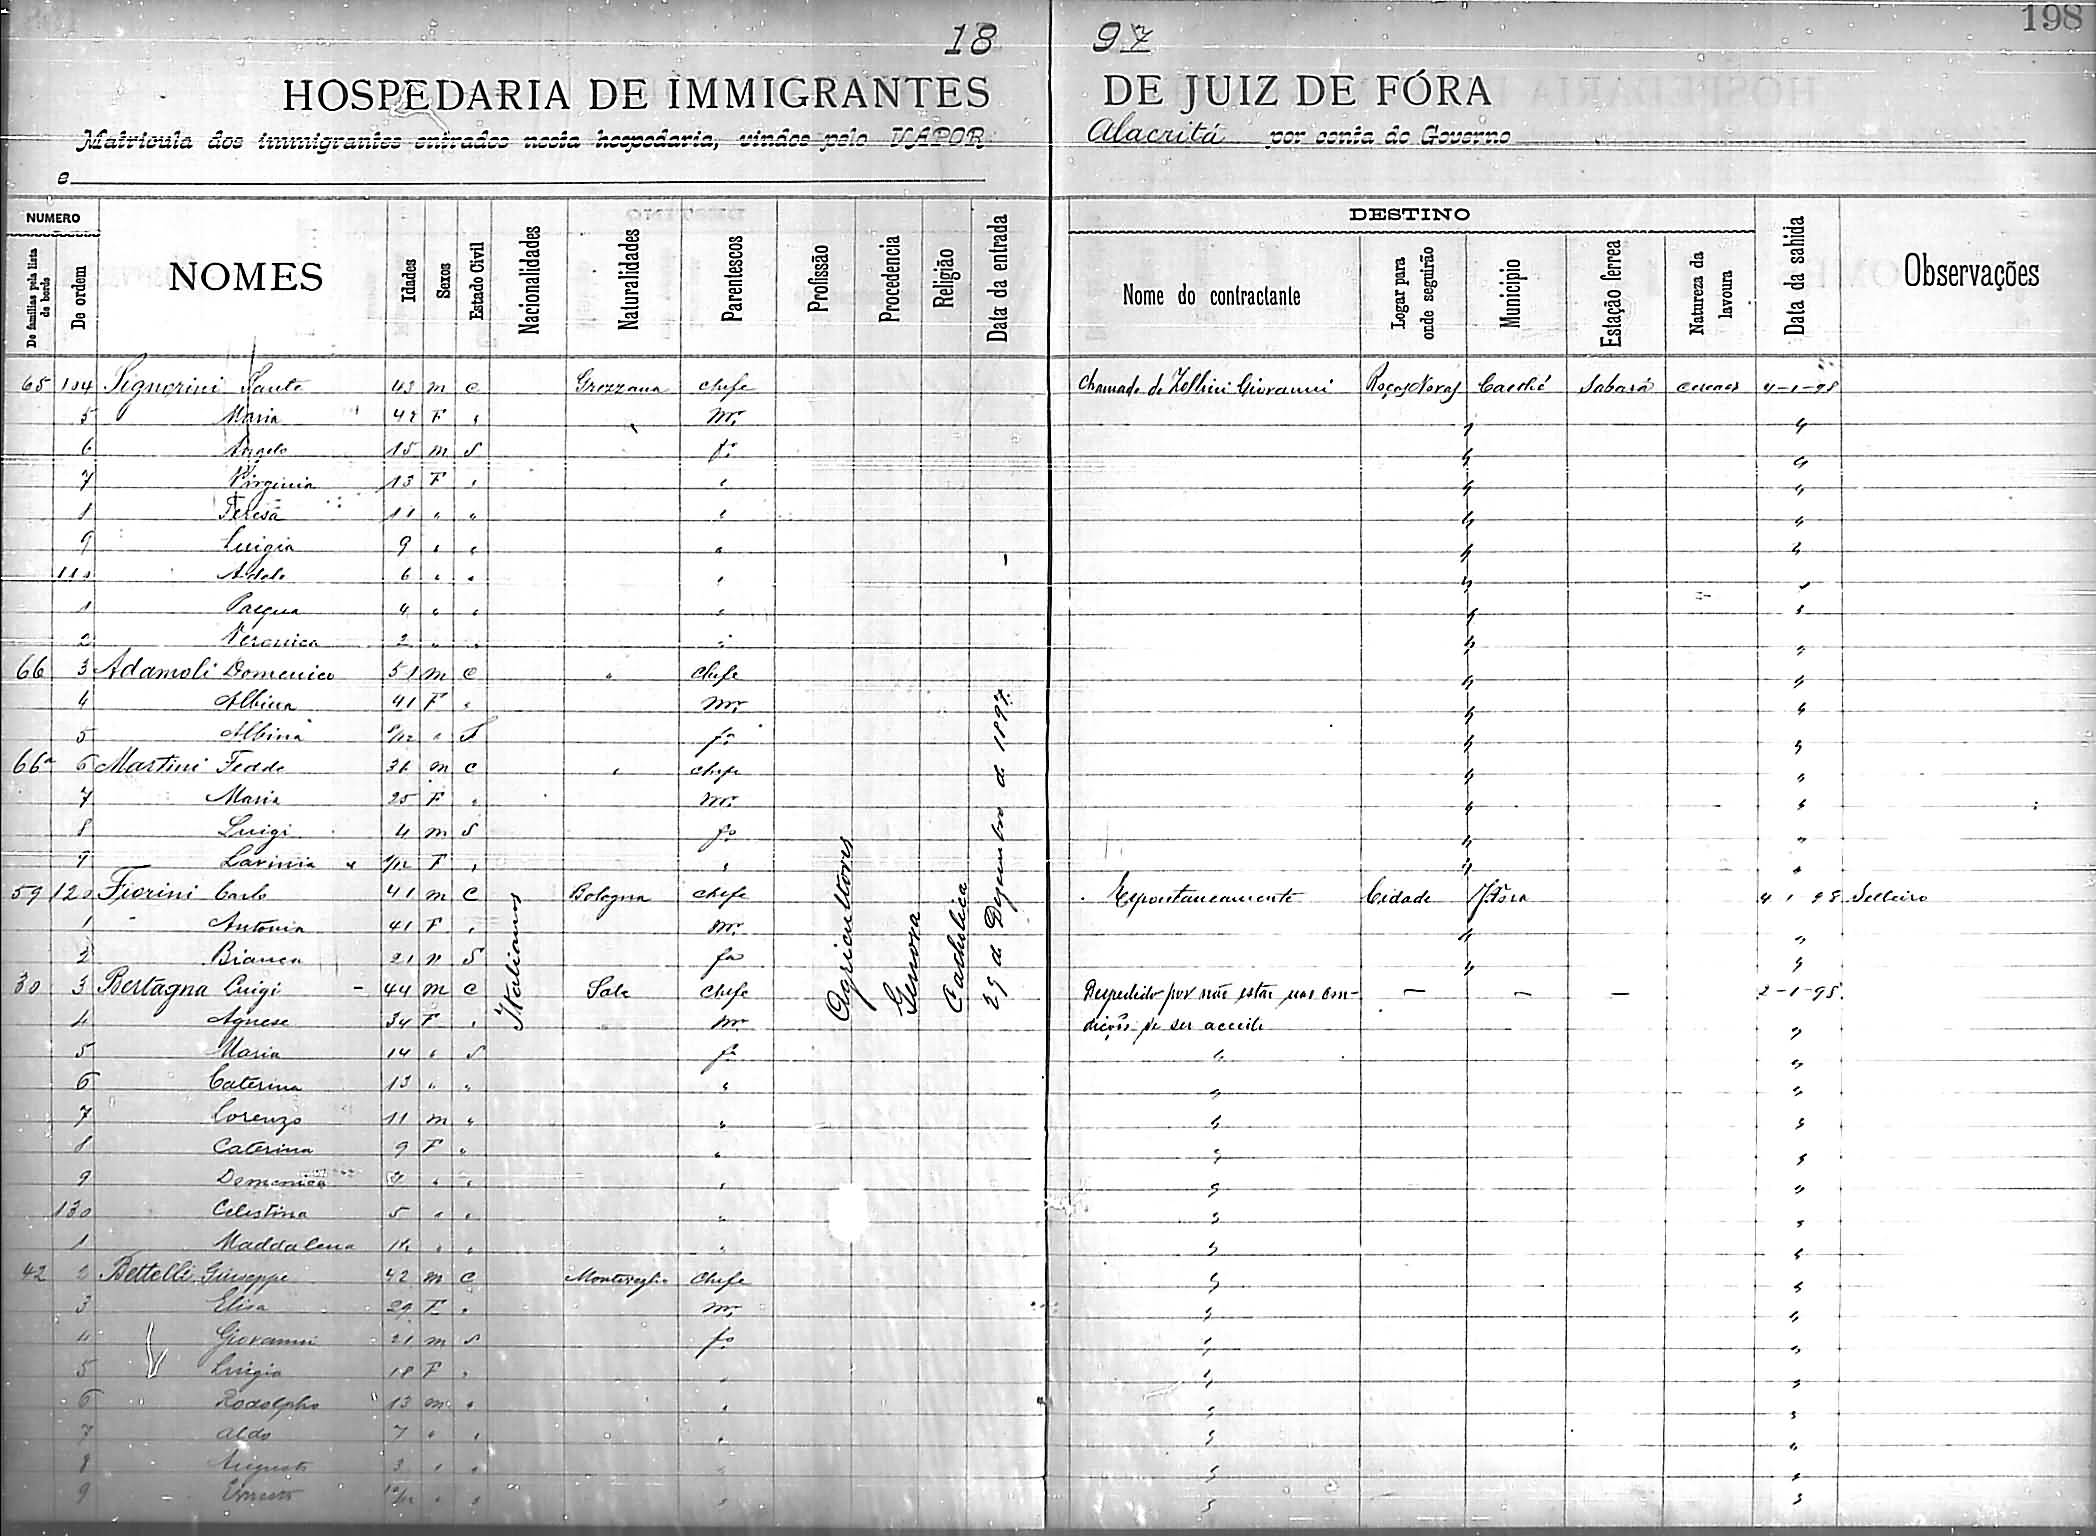 198
18 97
HOSPEDARIA DE IMMIGRANTES DE JUIZ DE FÓRA
Matricula dos immigrantes entrados nesta hospedaria, vindos pelo VAPOR Alacritá por conta do Governo
e
NUMERO DESTINO
De familias pela lista de bordo De ordem NOMES Idades Sexos Estado Civil Nacionalidades Naturalidades Parentescos Profissão Procedencia Religião Data da entrada Nome do contractante Logar para onde seguirão Municipio Estação ferrea Natureza da lavoura Data da sahida Observações
65 104 Signorini Sante 43 m C Grezzana chefe Chamado de Giovanni Roças Novas Caethé Sabará cereaes 4-1-98
5 Maria 42 F " mr "
6 Angelo 15 m S fo " "
7 Virginia 13 F " " " "
8 Teresa 11 " " " " "
9 Luigia 9 " " " " "
110 Adele 6 " " " " "
1 Pasqua 4 " " " " "
2 Veronica 2 " " " " "
66 3 Adamoli Domenico 51 m C " chefe " "
4 Albina 41 F " mr " "
5 Albina /12 " S fa " "
66a 6 Martini Fedde 31 m C " chefe " "
7 Maria 25 F " mr " "
8 Luigi 4 m S fo " "
9 Lavinia /12 F " " " "
59 120 Fiorini Carlo 41 m C Bologna chefe Espontaneamente Cidade J. Fóra 4 1 98 Selleiro
1 Antonia 41 F " mr " "
2 Bianca 21 " S fa " "
30 3 Bertagna Luigi 44 m C Sale chefe Despedido por não estar nas con- — — — 2-1-98.
4 Agnese 34 F " mr dições de ser acceite "
5 Maria 14 " S fa " "
6 Caterina 13 " " " " "
7 Lorenzo 11 m " " " "
8 Caterina 9 F " " " "
9 Domenica " " " " "
130 Celestina 5 " " " " "
1 Maddalena " " " " "
42 2 Bettelli Giuseppe 42 m C Monteveglio chefe " "
3 Elisa 29 F " mr " "
4 Giovanni 21 m S fo " "
5 Luigia 18 F " " " "
6 Rodolpho 13 m " " " "
7 Aldo 7 " " " " "
8 Augusto 3 " " " " "
9 Ernesto 10/12 " " " " "
Italianos
Agricultores
Genova
Catholica
29 de Dezembro de 1897.